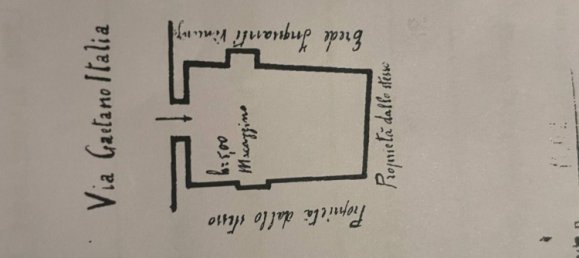 Via Gaetano Italia
Erede Inquanti
h=3,00
Magazzino
Proprietà dallo stesso
Proprietà dallo stesso